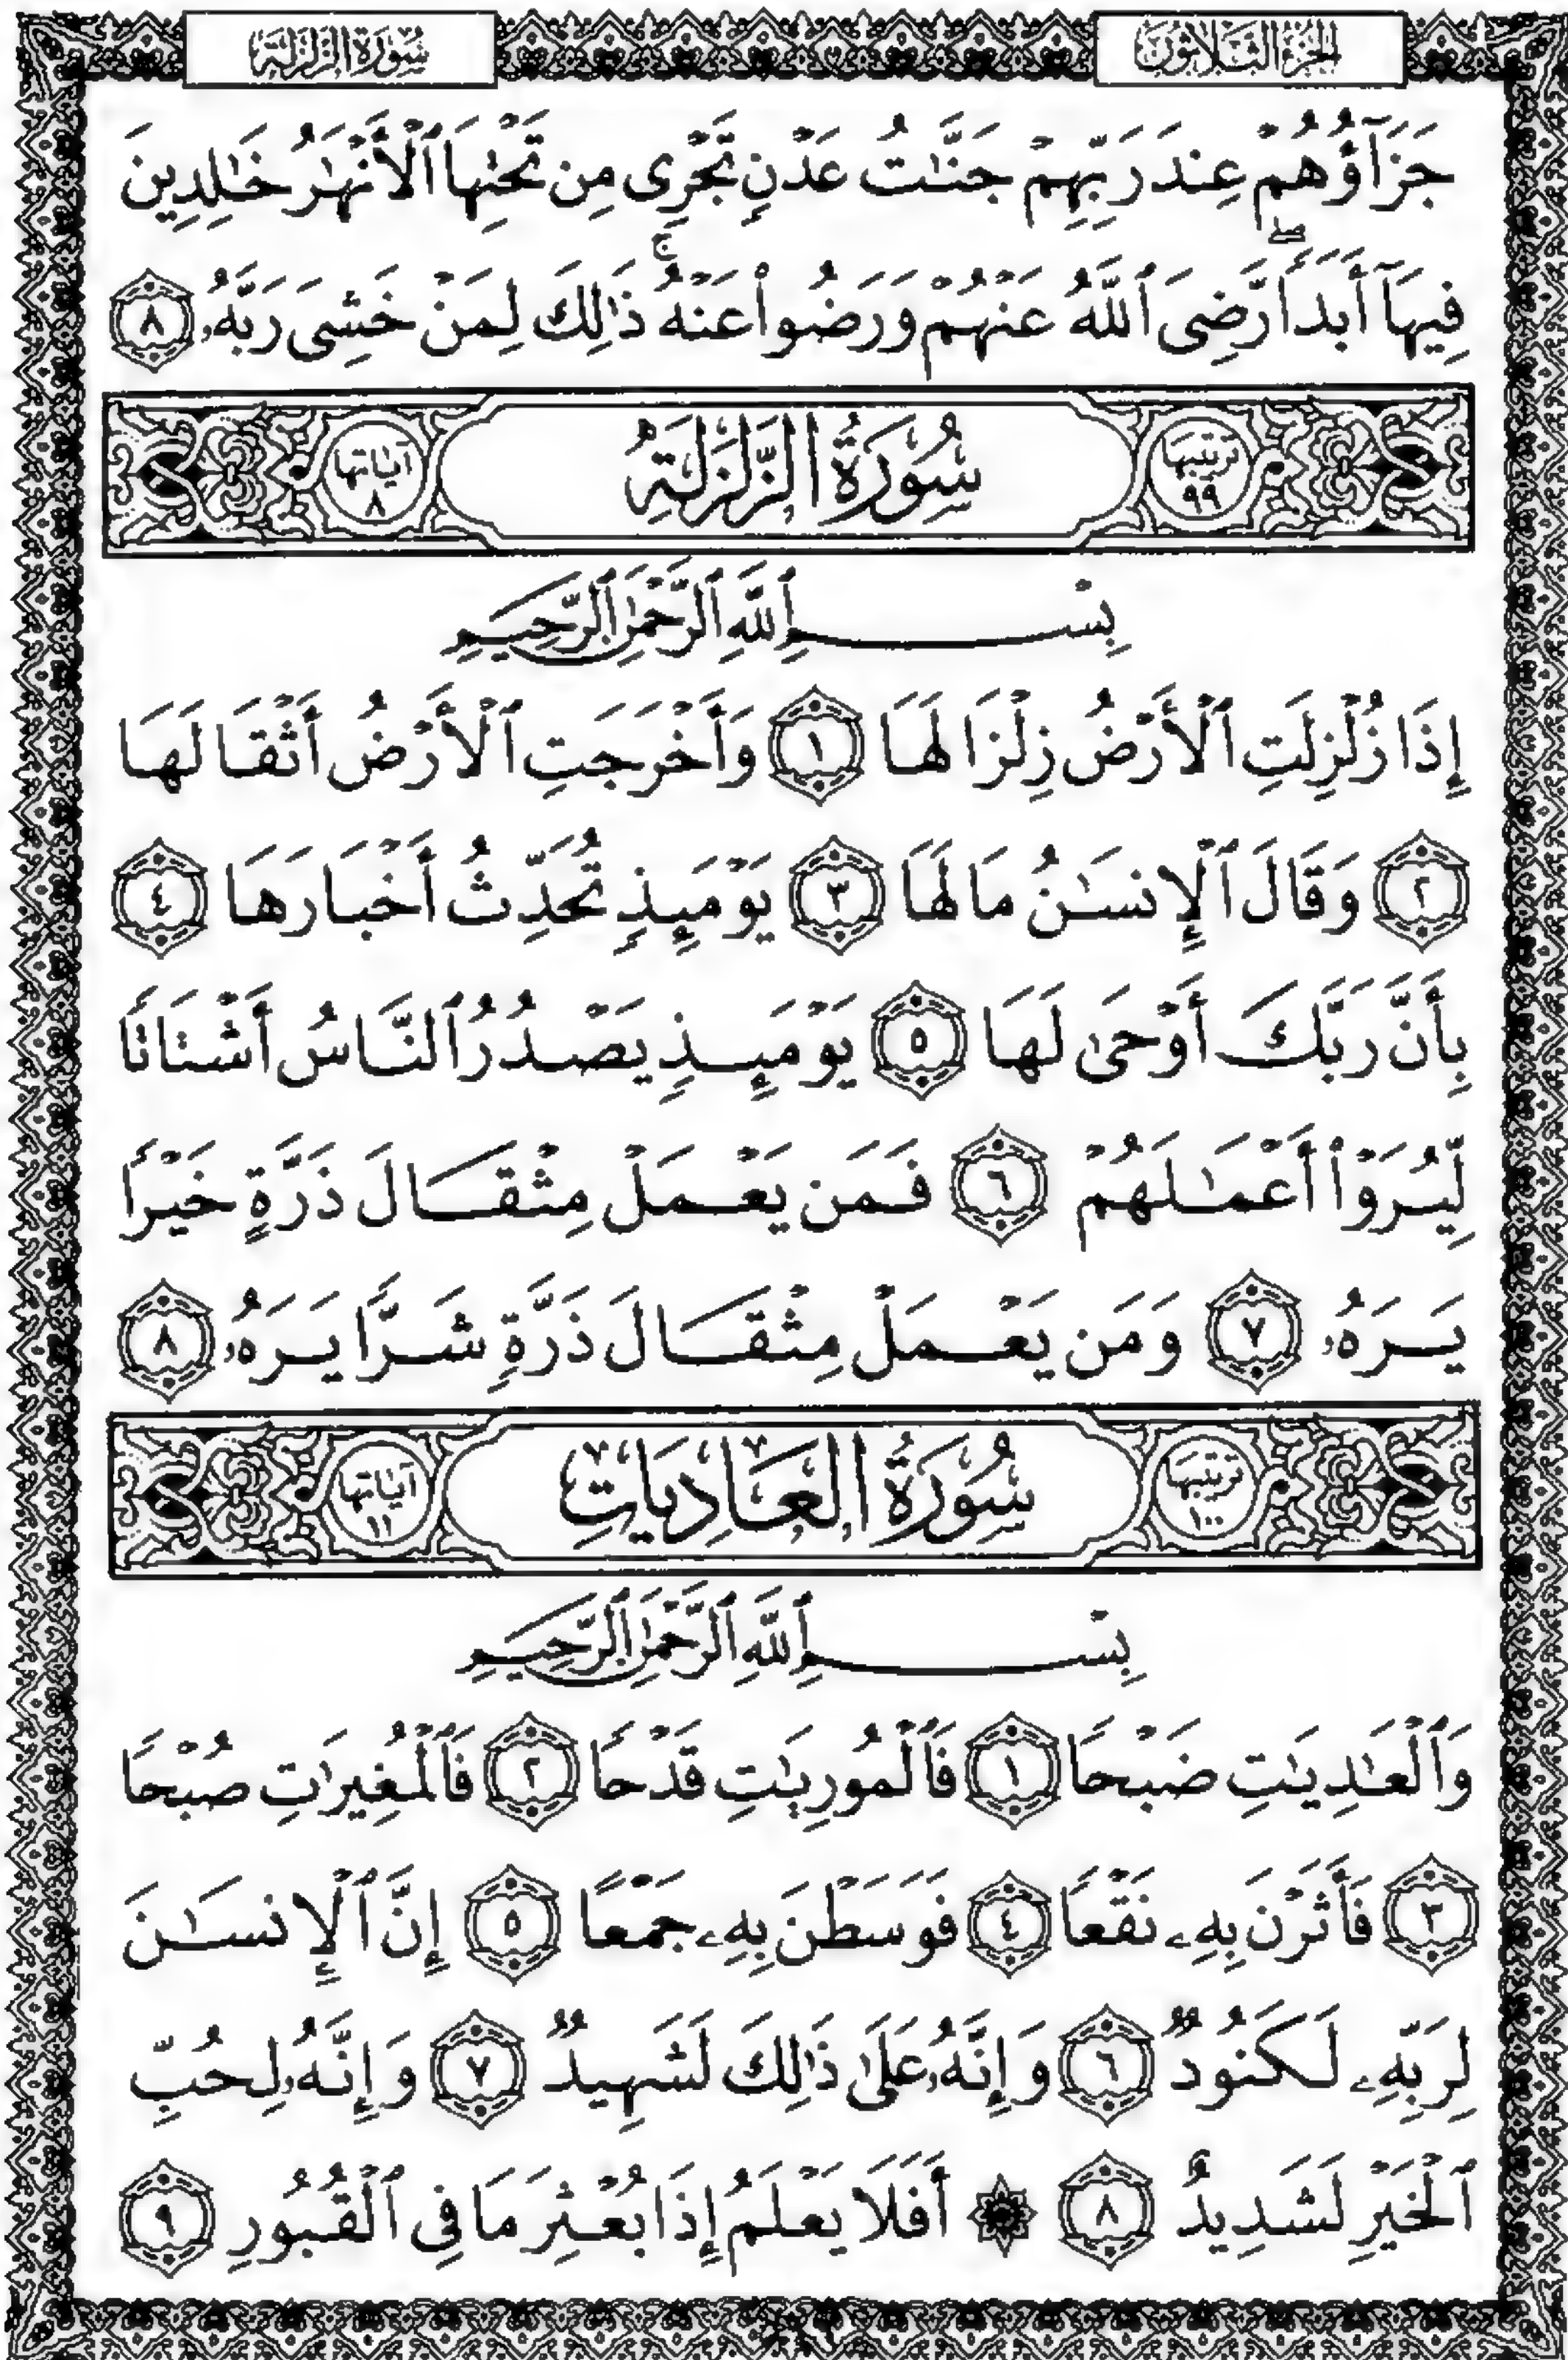 الجزء الثلاثون
سورة الزلزلة
جَزَآؤُهُمۡ عِندَ رَبِّهِمۡ جَنَّٰتُ عَدۡنٖ تَجۡرِي مِن تَحۡتِهَا ٱلۡأَنۡهَٰرُ خَٰلِدِينَ
فِيهَآ أَبَدٗاۖ رَّضِيَ ٱللَّهُ عَنۡهُمۡ وَرَضُواْ عَنۡهُۚ ذَٰلِكَ لِمَنۡ خَشِيَ رَبَّهُۥ ٨
ترتيبها ٩٩ سُورَةُ الزَّلْزَلَةِ آياتها ٨
بِسۡمِ ٱللَّهِ ٱلرَّحۡمَٰنِ ٱلرَّحِيمِ
إِذَا زُلۡزِلَتِ ٱلۡأَرۡضُ زِلۡزَالَهَا ١ وَأَخۡرَجَتِ ٱلۡأَرۡضُ أَثۡقَالَهَا
٢ وَقَالَ ٱلۡإِنسَٰنُ مَا لَهَا ٣ يَوۡمَئِذٖ تُحَدِّثُ أَخۡبَارَهَا ٤
بِأَنَّ رَبَّكَ أَوۡحَىٰ لَهَا ٥ يَوۡمَئِذٖ يَصۡدُرُ ٱلنَّاسُ أَشۡتَاتٗا
لِّيُرَوۡاْ أَعۡمَٰلَهُمۡ ٦ فَمَن يَعۡمَلۡ مِثۡقَالَ ذَرَّةٍ خَيۡرٗا
يَرَهُۥ ٧ وَمَن يَعۡمَلۡ مِثۡقَالَ ذَرَّةٖ شَرّٗا يَرَهُۥ ٨
ترتيبها ١٠٠ سُورَةُ الْعَادِيَاتِ آياتها ١١
بِسۡمِ ٱللَّهِ ٱلرَّحۡمَٰنِ ٱلرَّحِيمِ
وَٱلۡعَٰدِيَٰتِ ضَبۡحٗا ١ فَٱلۡمُورِيَٰتِ قَدۡحٗا ٢ فَٱلۡمُغِيرَٰتِ صُبۡحٗا
٣ فَأَثَرۡنَ بِهِۦ نَقۡعٗا ٤ فَوَسَطۡنَ بِهِۦ جَمۡعًا ٥ إِنَّ ٱلۡإِنسَٰنَ
لِرَبِّهِۦ لَكَنُودٞ ٦ وَإِنَّهُۥ عَلَىٰ ذَٰلِكَ لَشَهِيدٞ ٧ وَإِنَّهُۥ لِحُبِّ
ٱلۡخَيۡرِ لَشَدِيدٌ ٨ ۞ أَفَلَا يَعۡلَمُ إِذَا بُعۡثِرَ مَا فِي ٱلۡقُبُورِ ٩